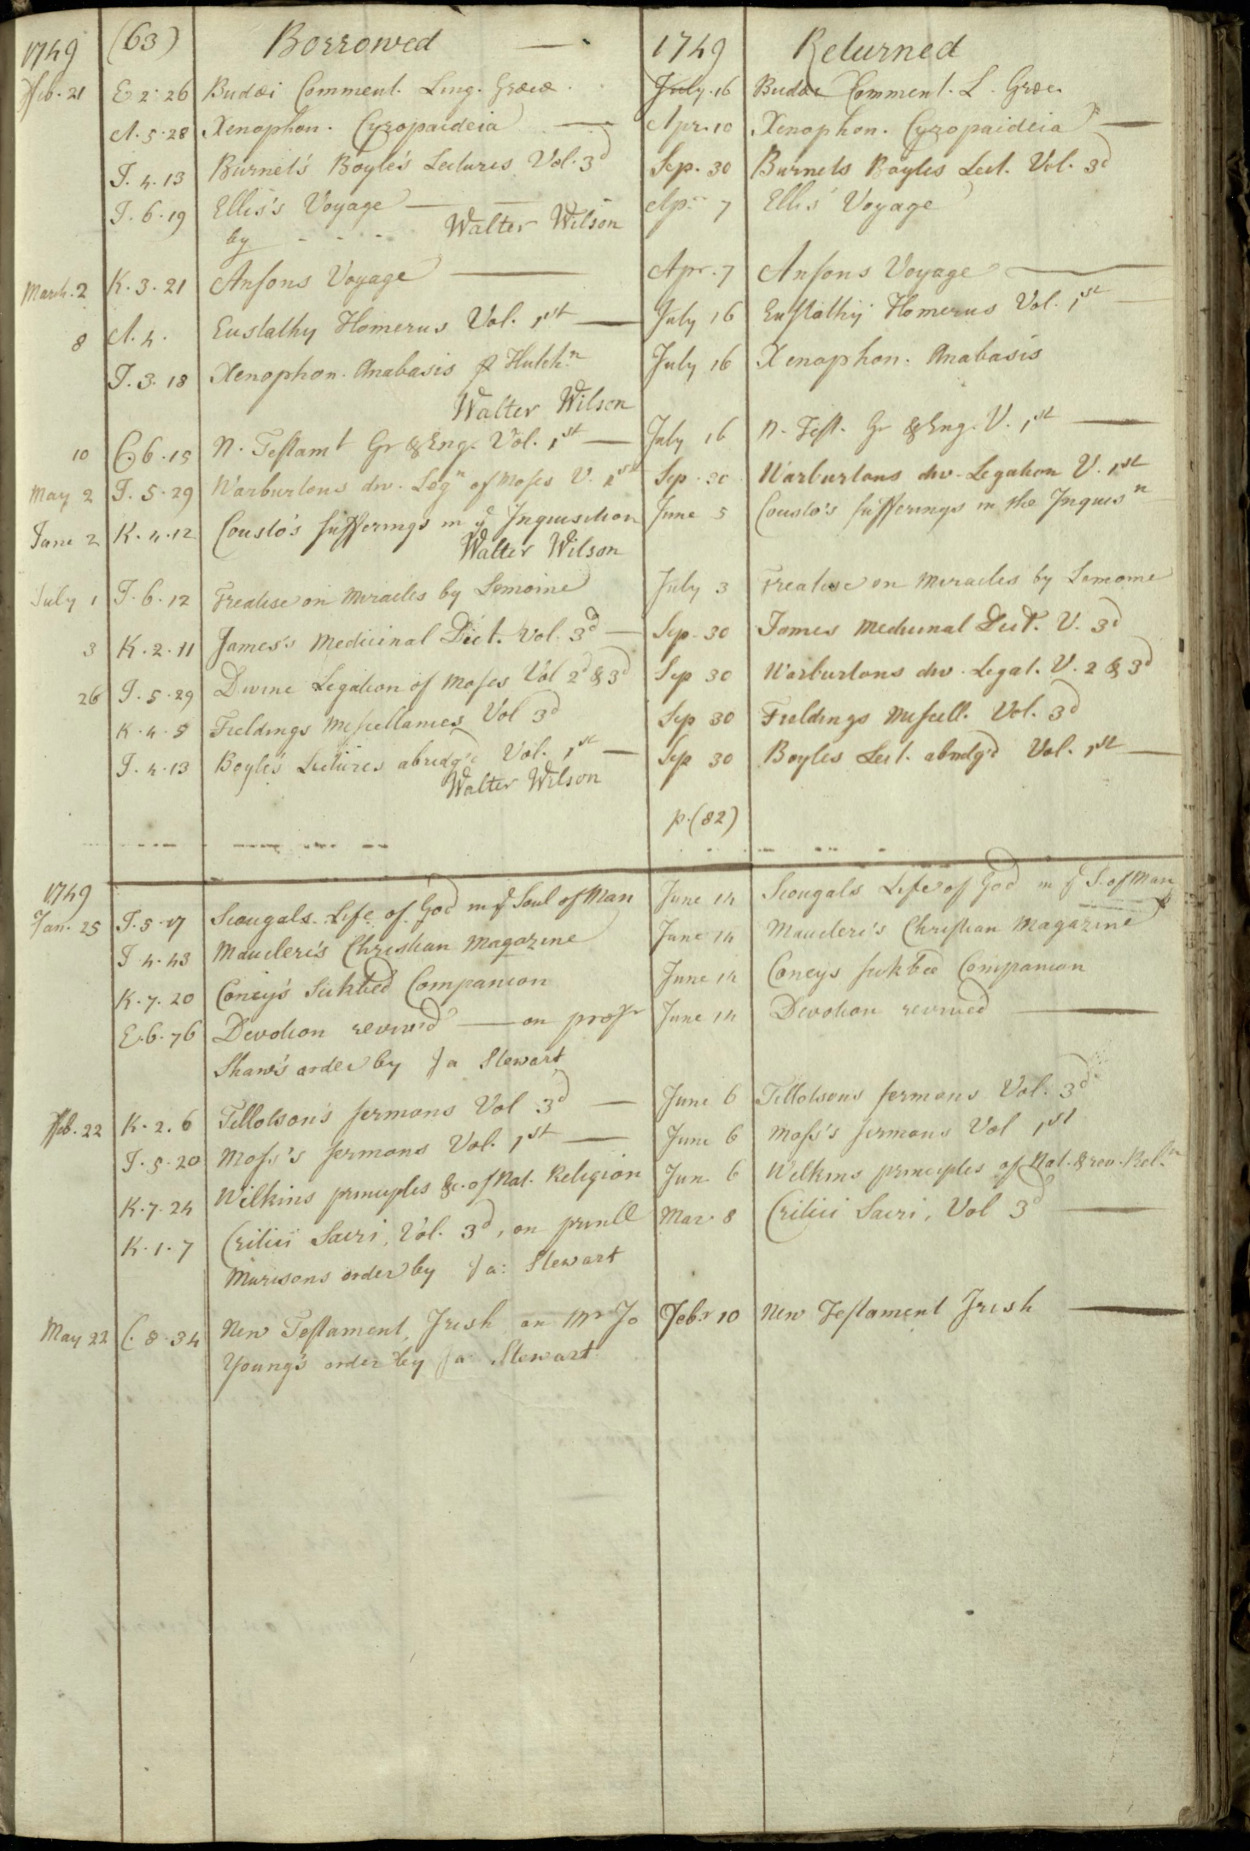 1749 (63) Borrowed — 1749 Returned
Feb. 21 E 2. 26 Budæi Comment. Ling. Græcæ July. 16 Budæi Comment. L. Græc.
A. 5. 28 Xenophon. Cyropaideia — Apr. 10 Xenophon. Cyropaideia —
I. 4. 13 Burnet's Boyle's Lectures Vol. 3d Sep. 30 Burnets Boyles Lect. Vol. 3d
I. 6. 19 Ellis's Voyage — Apr. 7 Ellis' Voyage
by - - - - Walter Wilson
March. 2 K. 3. 21 Ansons Voyage — Apr. 7 Ansons Voyage —
8 A. 4. Eustathy Homerus Vol. 1st — July 16 Eustathij Homerus Vol. 1st —
I. 3. 18 Xenophon. Anabasis p Hutchn July 16 Xenophon. Anabasis
Walter Wilson
10 C. 6. 15 N. Testamt Gr & Eng. Vol. 1st — July 16 N. Test. Gr & Eng. V. 1st —
May 2 I. 5. 29 Warburtons div. Legn of Moses V. 1st Sep. 30 Warburtons div. Legation V. 1st
June 2 K. 4. 12 Cousto's Sufferings in ye Inquisition June 5 Cousto's sufferings in the Inquisn
Walter Wilson
July 1 I. 6. 12 Treatise on Miracles by Lemoine July 3 Treatise on Miracles by Lemoine
3 K. 2. 11 James's Medicinal Dict. Vol. 3d — Sep. 30 James Medicinal Dict. V. 3d
26 I. 5. 29 Divine Legation of Moses Vol 2d & 3d Sep 30 Warburtons div. Legat. V. 2 & 3d
K. 4. 5 Fieldings Miscellanies Vol 3d Sep 30 Fieldings Miscell. Vol. 3d
I. 4. 13 Boyle's Lectures abridg'd Vol. 1st — Sep 30 Boyles Lect. abridg'd Vol. 1st —
Walter Wilson
p. (82)
1749
Jan. 25 I. 5. 17 Scougals Life of God in ye Soul of Man June 14 Scougals Life of God in ye S. of Man
I 4. 43 Mauclerc's Christian Magazine June 14 Mauclerc's Christian Magazine
K. 7. 20 Coney's Sickbed Companion June 14 Coneys sickbed Companion
E. 6. 76 Devotion reviv'd — on profr June 14 Devotion revived —
Shaw's order by Ja Stewart
Feb. 22 K. 2. 6 Tillotson's sermons Vol 3d — June 6 Tillotsons sermons Vol. 3d
I. 5. 20 Moss's sermons Vol. 1st — June 6 Moss's sermons Vol 1st
K. 7. 24 Wilkins principles &c. of Nat. Religion Jun. 6 Wilkins principles of Nat. & rev. Reln
K. 1. 7 Critici Sacri, Vol. 3d, on prinll Mar. 8 Critici Sacri, Vol 3d —
Murisons order by Ja: Stewart
May 22 C. 8. 34 New Testament, Irish on Mr Jo Febr 10 New Testament Irish —
Young's order by Ja Stewart